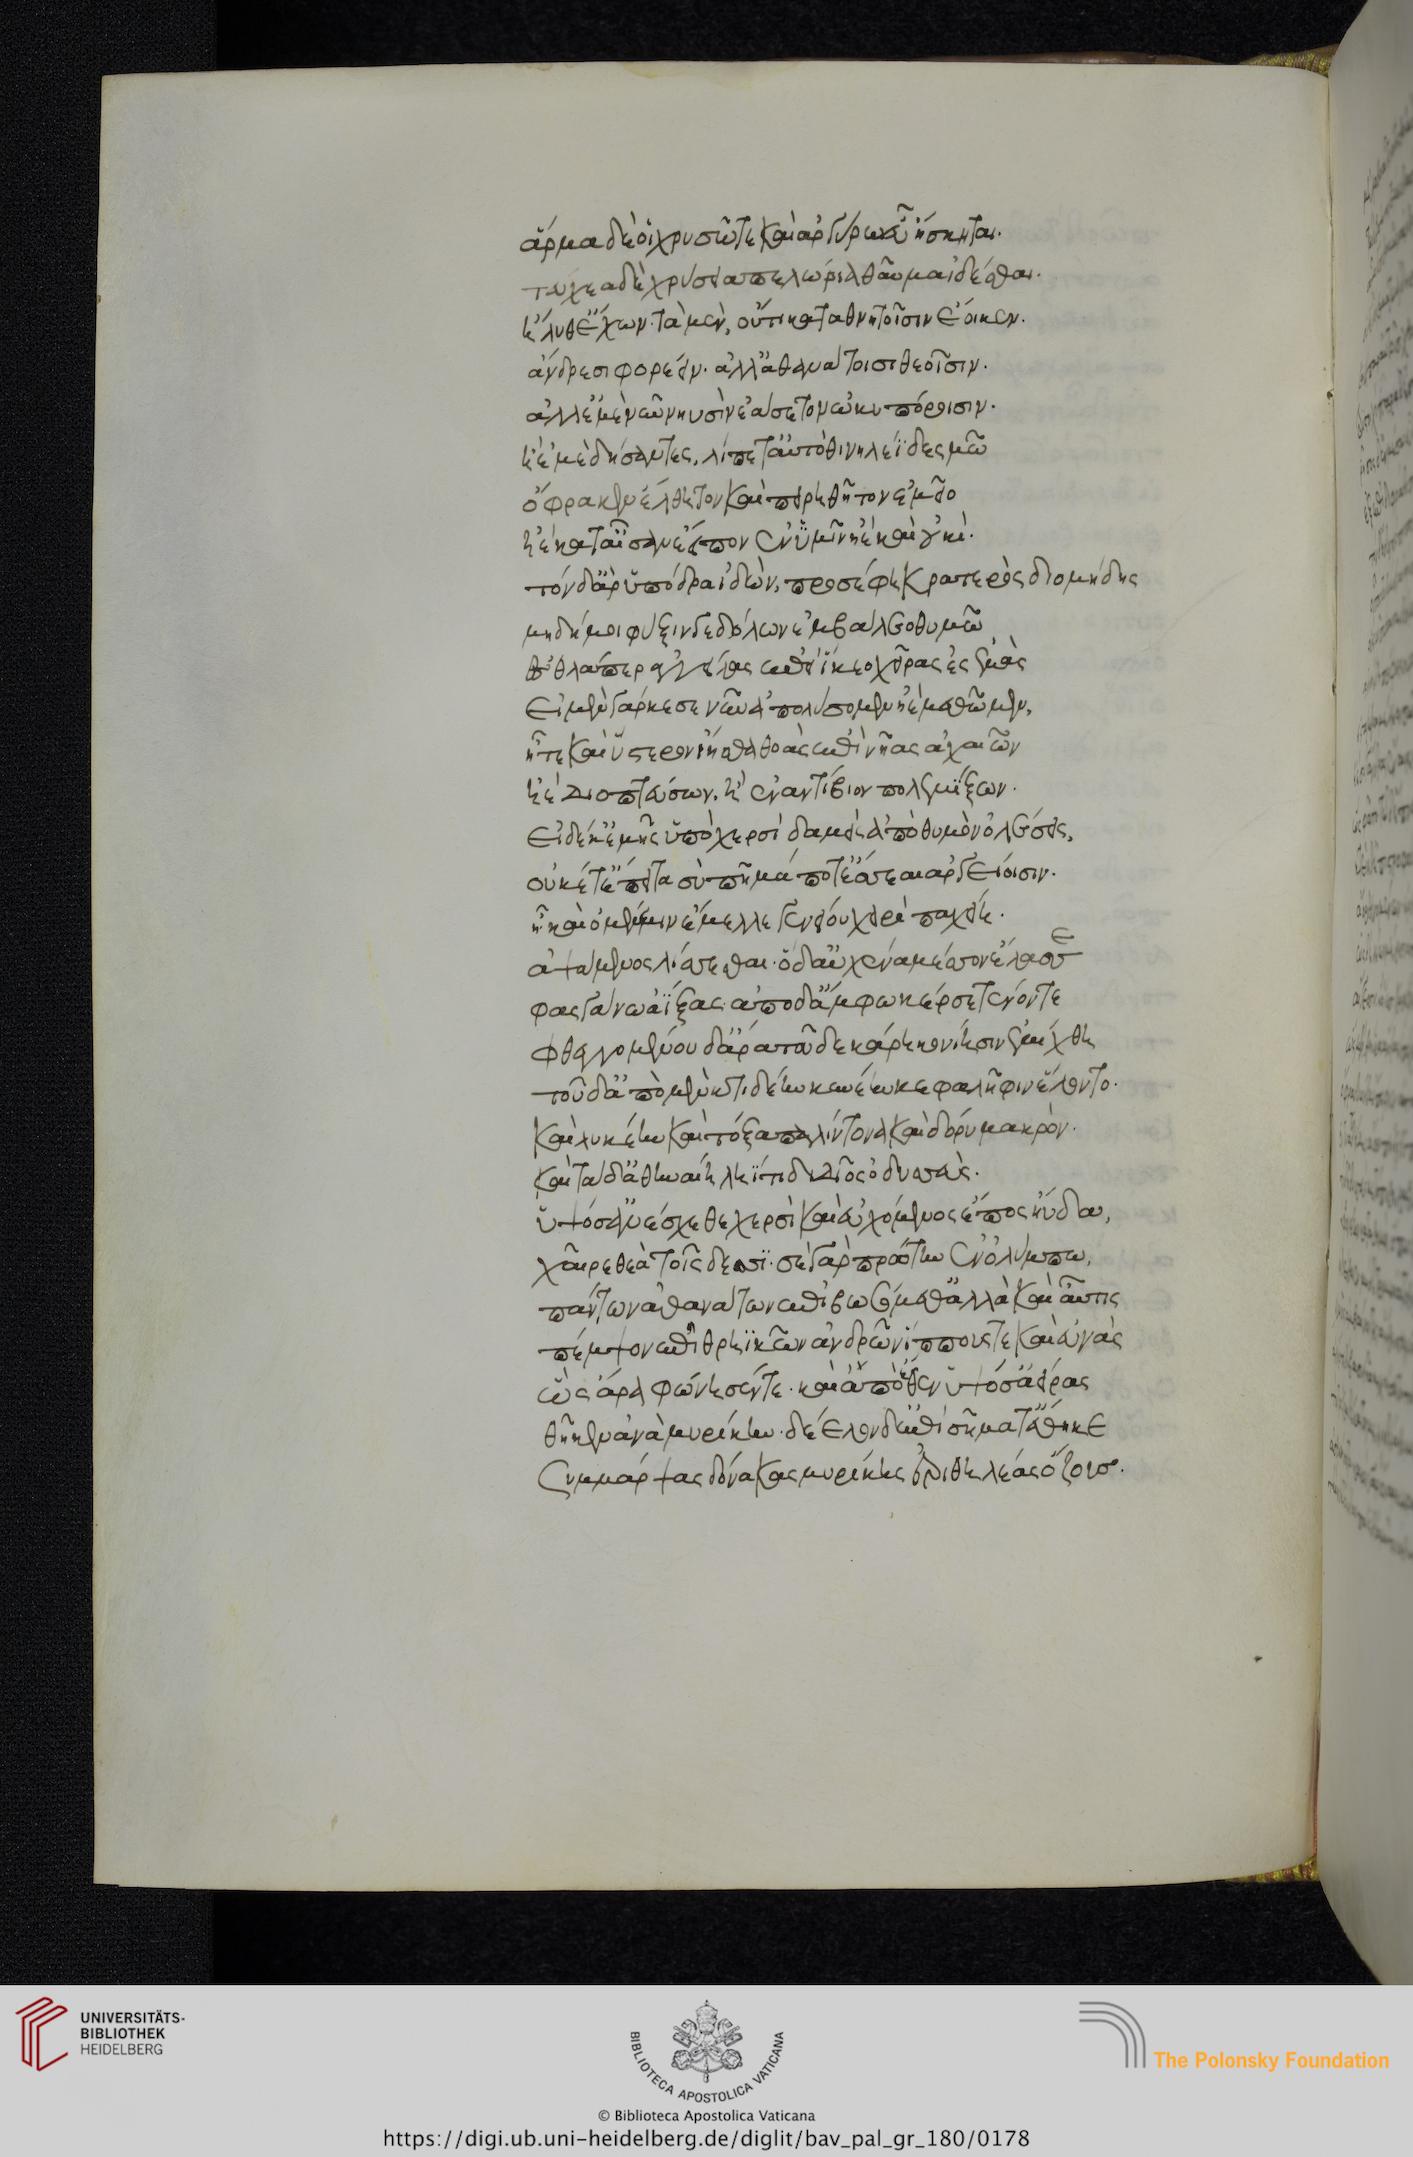 ἅρμα δὲ οἱ χρυσῶ τε καὶ ἀργύρω εὖ ἤσκηται·
τεύχεα δὲ χρύσεια πελώρια θαῦμα ἰδέσθαι·
ἤλυθ' ἔχων· τὰ μὲν, οὔτι καταθνητοῖσιν ἔοικεν·
ἄνδρεσι φορέειν· ἀλλ' ἀθανάτοισι θεοῖσιν·
ἀλλ' ἐμὲ νῦν νηυσὶν ἐάσετον ὠκυπόροισιν·
ἠέ με δήσαντες, λίπετ' αὐτόθι νηλέϊ δεσμῶ
ὄφρα κεν ἔλθητον καὶ πειρηθῆτον ἐμεῖο
ἠὲ κατ' αἶσαν ἔειπον ἐν ὑμῖν ἠὲ καὶ οὐκί·
τόν δ' ἄρ ὑπόδρα ἰδὼν, προσέφη κρατερὸς διομήδης
μὴ δή μοι φύξιν δε δόλων ἐμβάλεο θυμῶ
ἐσθλά περ ἀγγείλας ἐπεὶ ἵκεο χεῖρας ἐς ἡμὰς
εἰ μὲν γάρ κέ σε νῦν ἀπολύσομεν ἠὲ μεθῶμεν,
ἦ τε καὶ ὕστερον εἶσθα θοὰς ἐπὶ νῆας ἀχαιῶν
ἠὲ διοπτεύσων, ἢ ἐναντίβιον πολεμίξων·
εἰ δέ κ' ἐμῆς ὑπὸ χερσὶ δαμεὶς ἀπὸ θυμὸν ὀλέσεις,
οὐκέτ' ἔπειτα σὺ πῆμά ποτ' ἔσσεαι ἀργείοισιν·
ἦ καὶ ὁ μέν μιν ἔμελλε γενείου χειρὶ παχείη·
ἁψάμενος λίσσεσθαι· ὁ δ' αὐχένα μέσσον ἔλασσε
φασγάνω ἀΐξας· ἀπὸ δ' ἄμφω κέρσε τένοντε
φθεγγομένου δ' ἄρα τοῦ δε κάρη κονίησιν ἐμίχθη
τοῦ δ' ἀπὸ μὲν κτιδέην κυνέην κεφαλῆφιν ἕλοντο·
καὶ λυκέην καὶ τόξα παλίντονα καὶ δόρυ μακρόν·
καὶ τά δ' ἀθηναίη ληΐτιδι δῖος ὀδυσσεὺς·
ὑψόσ' ἀνέσχεθε χερσὶ καὶ εὐχόμενος ἔπος ηὔδα,
χαῖρε θεὰ τοῖς δεσσι· σὲ γὰρ πρώτην ἐν ὀλύμπω,
πάντων ἀθανάτων ἐπιβωσόμεθ' ἀλλὰ καὶ αὖτις
πέμψον ἐπὶ θρηϊκῶν ἀνδρῶν ἵππους τε καὶ εὐνὰς
ὣς ἄρα φώνησέν τε· καὶ ἀπὸ ἕθεν ὑψόσ' ἀείρας
θῆκεν ἀνὰ μυρίκην· δέελον δ' ἐπὶ σῆμα τ' ἔθηκε
συμμάρψας δόνακας μυρίκης ἐριθηλέας ὄζους·
UNIVERSITÄTS-
BIBLIOTHEK
HEIDELBERG
BIBLIOTECA APOSTOLICA VATICANA
The Polonsky Foundation
© Biblioteca Apostolica Vaticana
https://digi.ub.uni-heidelberg.de/diglit/bav_pal_gr_180/0178